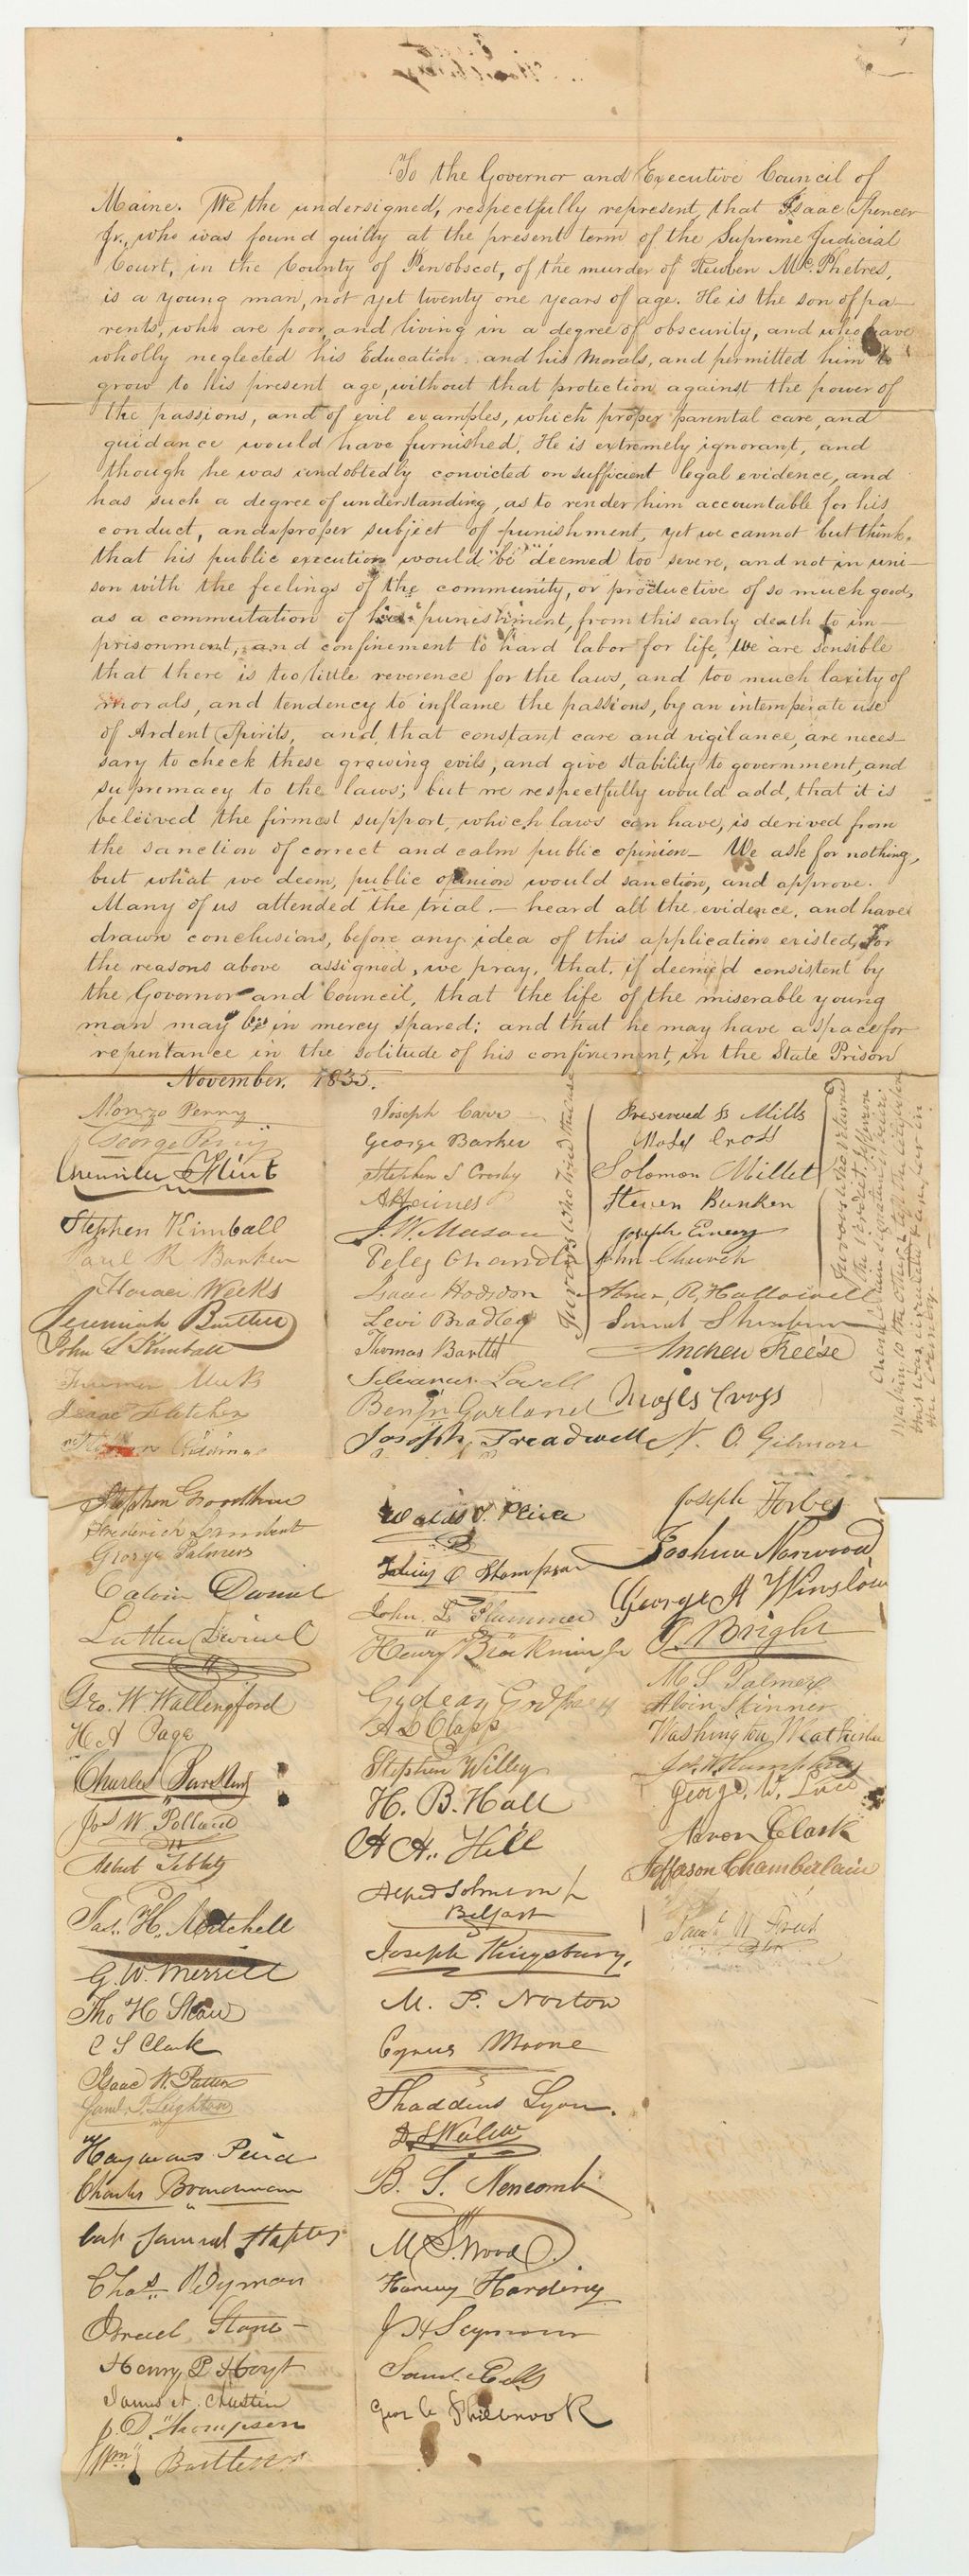 To the Governor and Executive Council of
Maine. We the undersigned, respectfully represent, that Isaac Spencer
Jr., who was found guilty at the present term of the Supreme Judicial
Court, in the County of Penobscot, of the murder of Reuben Mc.Phetres,
is a young man, not yet twenty one years of age. He is the son of pa-
rents, who are poor, and living in a degree of obscurity, and who have
wholly neglected his Education and his Morals, and permitted him to
grow to his present age, without that protection against the power of
the passions, and of evil examples, which proper parental care, and
guidance would have furnished. He is extremely ignorant, and
though he was undobtedly convicted on sufficient legal evidence, and
has such a degree of understanding, as to render him accountable for his
conduct, and a proper subject of punishment, yet we cannot but think,
that his public execution would be deemed too severe, and not in uni-
son with the feelings of the community, or productive of so much good,
as a commutation of his punishment, from this early death to im-
prisonment, and confinement to hard labor for life, We are sensible
that there is too little reverence for the laws, and too much laxity of
morals, and tendency to inflame the passions, by an intemperate use
of Ardent Spirits, and, that constant care and vigilance, are neces-
sary to check these growing evils, and give stability to government, and
supremacy to the laws; but we respectfully would add, that it is
beleived the firmest support, which laws can have, is derived from
the sanction of correct and calm public opinion- We ask for nothing,
but what we deem, public opinion would sanction, and approve.
Many of us attended the trial.- heard all the evidence, and have
drawn conclusions, before any idea of this application existed, For
the reasons above assigned, we pray, that, if deemed consistent by
the Governor and Council, that the life of the miserable young
man may be in mercy spared; and that he may have a space for
repentance in the solitude of his confinement, in the State Prison
November. 1835.
Alonzo Perry
George Perry
Stephen Kimball
Paul R Barker
Horace Weeks
John S Kimball
Isaac Fletcher
Joseph Carr
George Barker
Stephen S Crosby
J. W. Mason
Peleg Chandler
Isaac Hodsdon
Levi Bradley
Thomas Bartlett
Silvanus Lovell
Benjn Garland
Joseph Treadwell
Jurors who tried the case
Preserved B Mills
Moses Cross
Solomon Millet
Steven Bunker
Joseph Emery
John Church
Abner R. Hallowell
Andrew Freese
Moses Cross
N. O. Gilmore
Jurors who returned
the verdict
Frederick Lambert
George Palmer
Calvin Dwinel
Luther Dwinel
Geo. W Wallingford
H A Page
Jos W. Pollard
Jas. H. Mitchell
G. W. Merrill
Tho H Shaw
C S Clark
Isaac W. Patten
Saml. T. Leighton
Capt Samuel Staples
Chas Wyman
Israel Stone
Henry P Hoyt
J. D. Thompson
Wm Bartlett
John L Plummer
A D Clapp
Stephen Willey
H. B. Hall
H H. Hill
Alfred Johnson Jr
Belfast
Joseph Kingsbury.
M. P. Norton
Cyrus Moore
Thaddeus Lyon.
B. S. Newcomb
M S. Wood
Harvey Harding
J H Seymour
Geor C Philbrook
Joseph Forbes
Joshua Norwood
George A Winslow
M S Palmer
Alvin Skinner
Aaron Clark
Jefferson Chamberlain